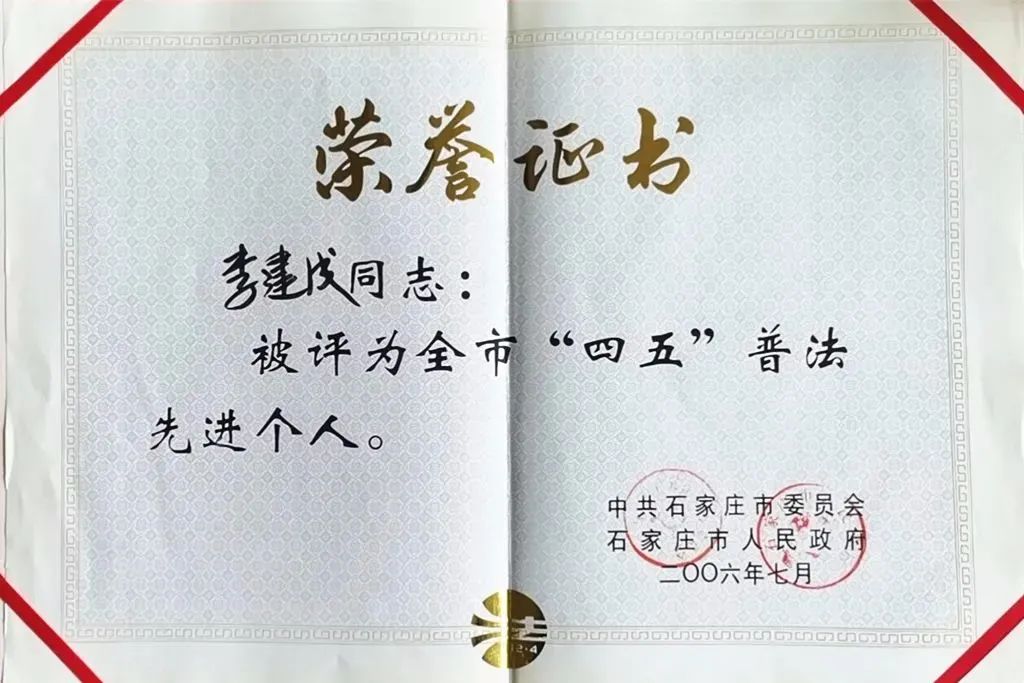 荣誉证书
李建成同志：
被评为全市“四五”普法
先进个人。
中共石家庄市委员会
石家庄市人民政府
二〇〇六年七月
法
12·4